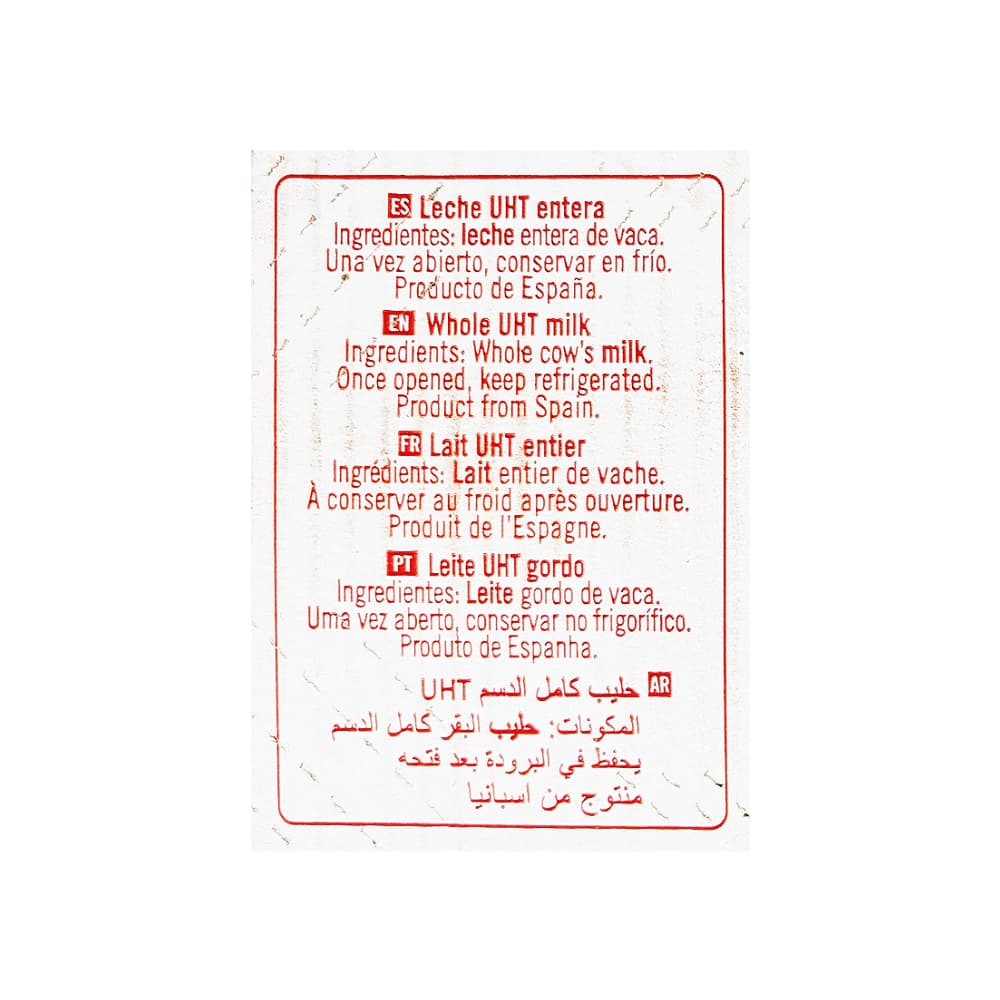 ES Leche UHT entera
Ingredientes: leche entera de vaca.
Una vez abierto, conservar en frío.
Producto de España.
EN Whole UHT milk
Ingredients: Whole cow's milk.
Once opened, keep refrigerated.
Product from Spain.
FR Lait UHT entier
Ingrédients: Lait entier de vache.
À conserver au froid après ouverture.
Produit de l'Espagne.
PT Leite UHT gordo
Ingredientes: Leite gordo de vaca.
Uma vez aberto, conservar no frigorífico.
Produto de Espanha.
AR حليب كامل الدسم UHT
المكونات: حليب البقر كامل الدسم
يحفظ في البرودة بعد فتحه
منتوج من اسبانيا